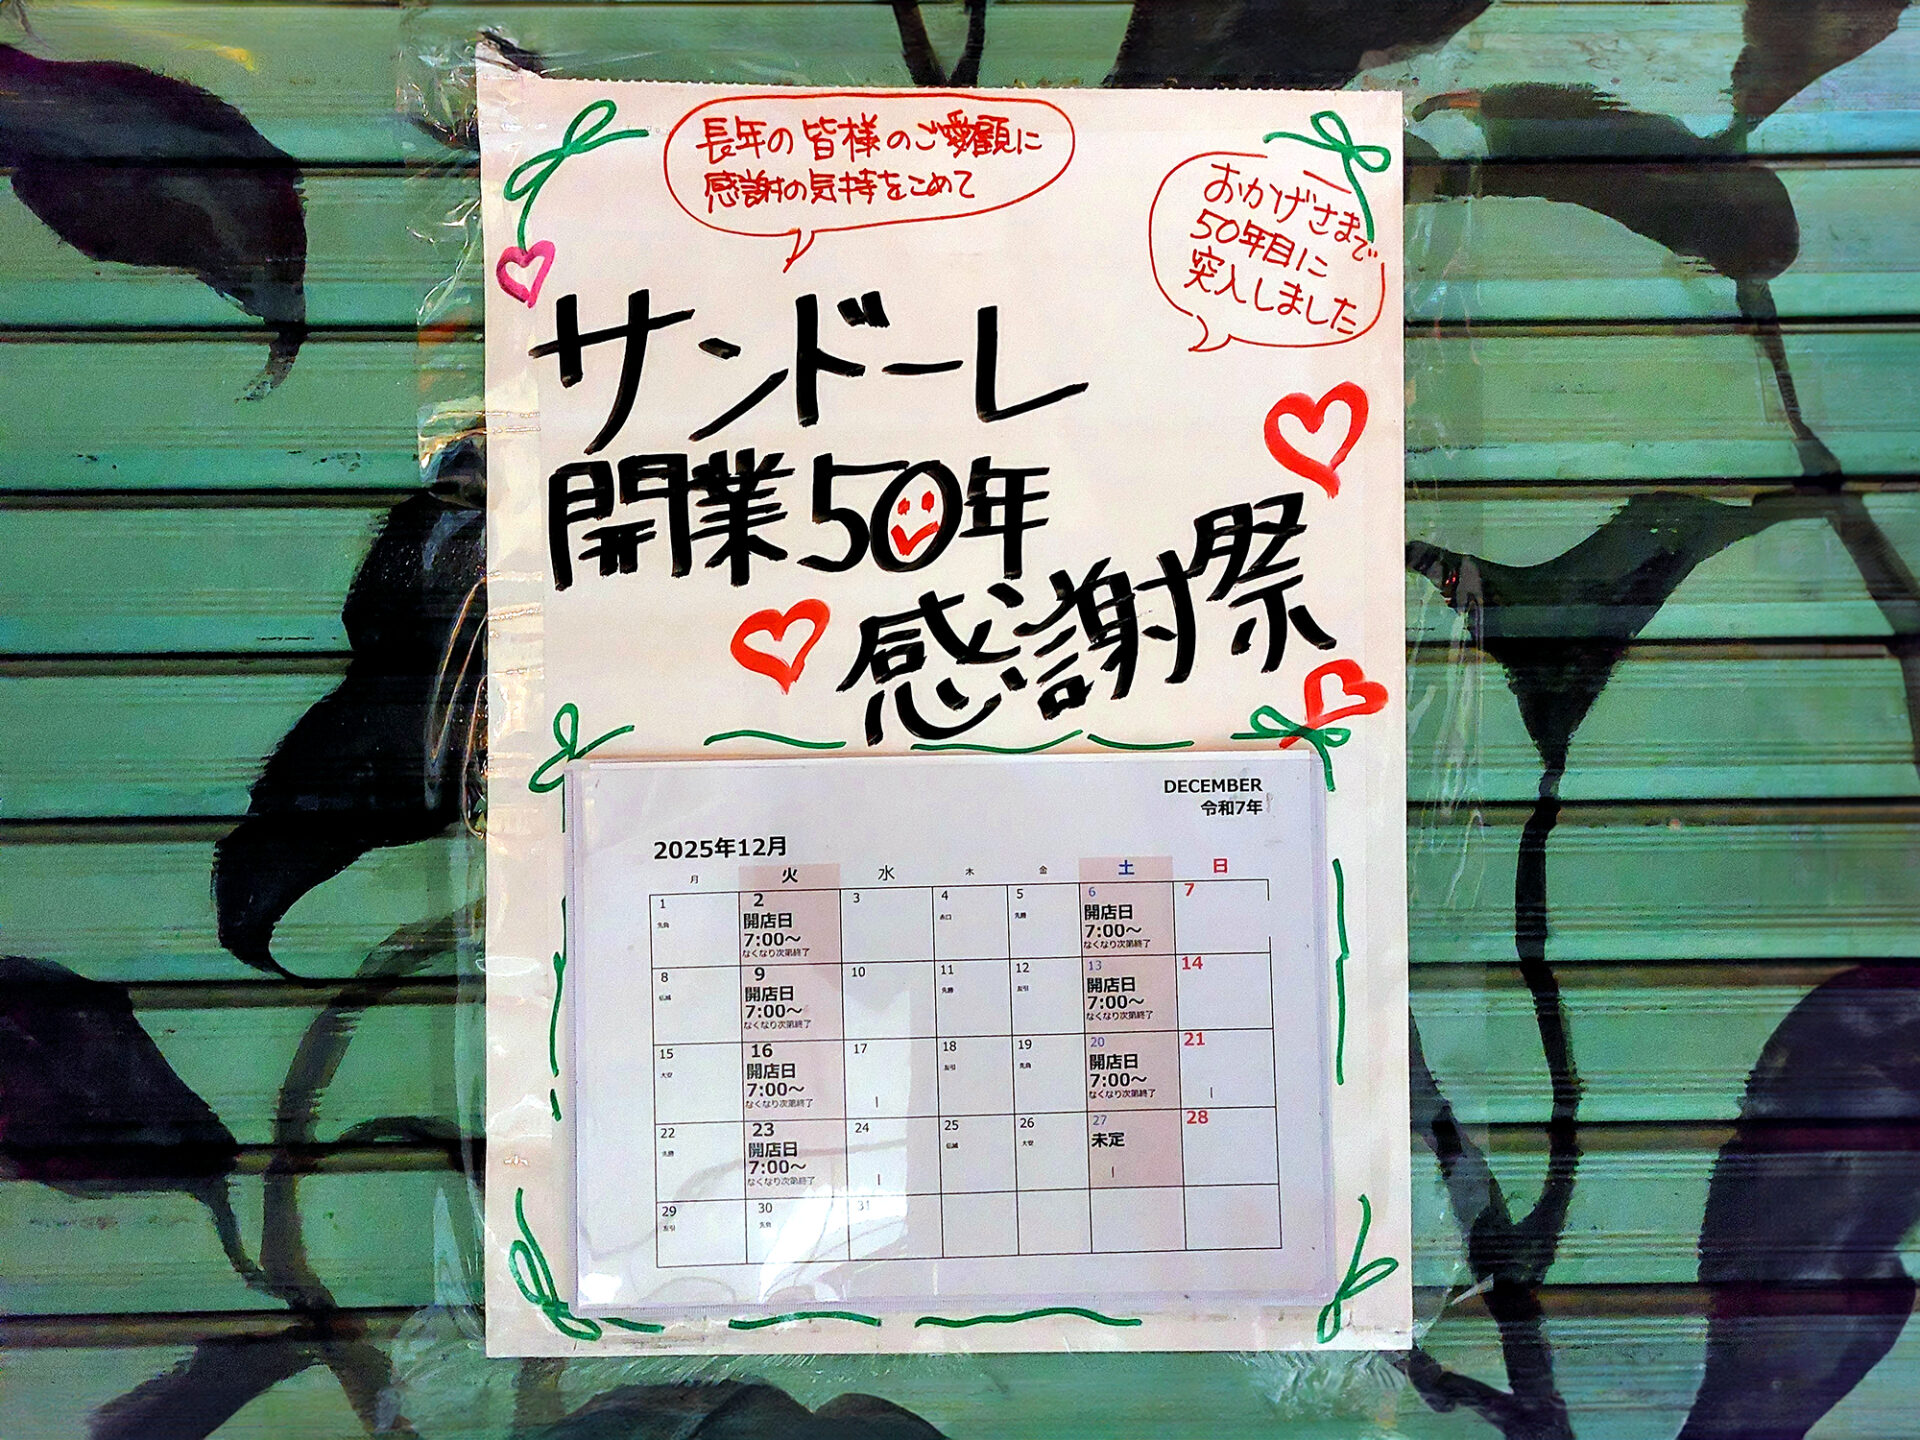 長年の皆様のご愛顧に
感謝の気持をこめて
おかげさまで
50年目に
突入しました
サンドーレ
開業50年
感謝祭
DECEMBER
令和7年
2025年12月
月 火 水 木 金 土 日
1 2 3 4 5 6 7
先負 開店日 赤口 先勝 開店日
7:00～ 7:00～
なくなり次第終了 なくなり次第終了
8 9 10 11 12 13 14
仏滅 開店日 先勝 友引 開店日
7:00～ 7:00～
なくなり次第終了 なくなり次第終了
15 16 17 18 19 20 21
大安 開店日 友引 先負 開店日
7:00～ 7:00～
なくなり次第終了 なくなり次第終了
22 23 24 25 26 27 28
先勝 開店日 仏滅 大安 未定
7:00～
なくなり次第終了
29 30 31
友引 先負